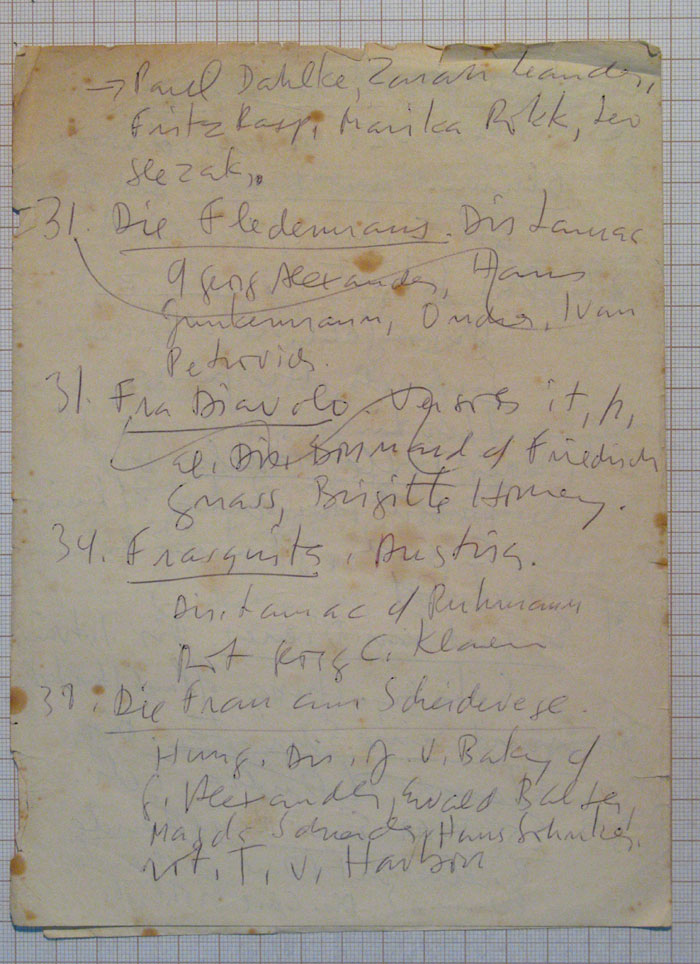 → Paul Dahlke, Zarah Leander,
Fritz Rasp, Marika Rökk, Leo
Slezak,..
31. Die Fledermaus. Dir. Lamac
Georg Alexander, Hans
Junkermann, Ondra, Ivan
Petrovich.
31. Fra Diavolo. it, fr,
al. Dir. Bonnard d Friedrich
Brigitte Horney.
34. Frasquita. Austria.
Dir. Lamac d Rühmann
Georg C. Klaren
37. Die Frau am Scheidewege.
Hung. Dir. J. v. Baky d
G. Alexander, Ewald Balser,
Magda Schneider, Hans Söhnker.
T. v. Harbou